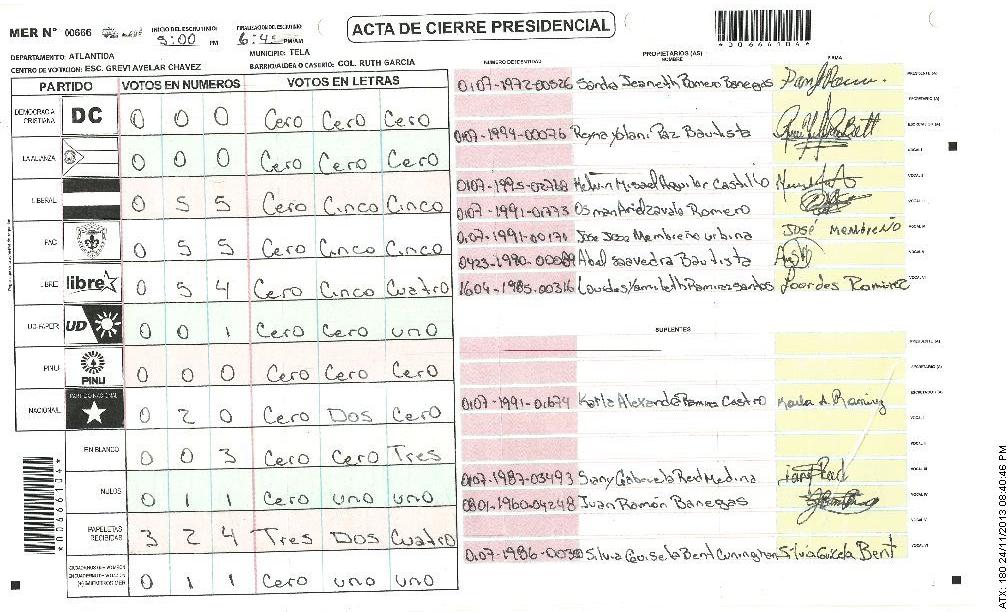 MER N° 00666
INICIO DEL ESCRUTINIO
5:00 PM
FINALIZACION DEL ESCRUTINIO
6:45 PM/AM
ACTA DE CIERRE PRESIDENCIAL
DEPARTAMENTO: ATLANTIDA
MUNICIPIO: TELA
CENTRO DE VOTACION: ESC. GREVI AVELAR CHAVEZ
BARRIO/ALDEA O CASERIO: COL. RUTH GARCIA
PARTIDO VOTOS EN NUMEROS VOTOS EN LETRAS
DEMOCRACIA CRISTIANA DC 0 0 0 Cero Cero Cero
LA ALIANZA 0 0 0 Cero Cero Cero
LIBERAL 0 5 5 Cero Cinco Cinco
PAC 0 5 5 Cero Cinco Cinco
LIBRE libre 0 5 4 Cero Cinco Cuatro
UD-FAPER UD 0 0 1 Cero Cero uno
PINU PINU 0 0 0 Cero Cero Cero
NACIONAL PARTIDO NACIONAL 0 2 0 Cero Dos Cero
EN BLANCO 0 0 3 Cero Cero Tres
NULOS 0 1 1 Cero uno uno
PAPELETAS RECIBIDAS 3 2 4 Tres Dos Cuatro
0 1 1 Cero uno uno
PROPIETARIOS (AS)
NUMERO DE IDENTIDAD NOMBRE FIRMA
0107-1972-00526 Sandra Jeaneth Romero Banegas PRESIDENTE (A)
SECRETARIO (A)
0107-1994-00076 Reyna Yolani Paz Bautista ESCRUTADOR (A)
VOCAL I
0107-1995-02768 Kelvin Misael Aguilar Castillo VOCAL II
0107-1991-01773 Osman Ariel Zavala Romero
0107-1991-00171 Jose Jose Membreño urbina JOSÉ MEMBREÑO VOCAL IV
0423-1990-00089 Abel Saavedra Bautista VOCAL V
1604-1985-00316 Lourdes Yamileth Ramirez santos Lourdes Ramirez VOCAL VI
SUPLENTES
PRESIDENTE (A)
SECRETARIO (A)
0107-1991-01674 Karla Alexandra Ramirez Castro Karla A. Ramirez ESCRUTADOR (A)
VOCAL I
VOCAL II
0107-1987-03493 Siany Gabriela Red Medina VOCAL III
0801-1960-04248 Juan Ramón Banegas VOCAL IV
VOCAL V
Silvia Guisela Bent Cunington Silvia Guisela Bent VOCAL VI
ATX: 180 24/11/2013 08:40:46 PM